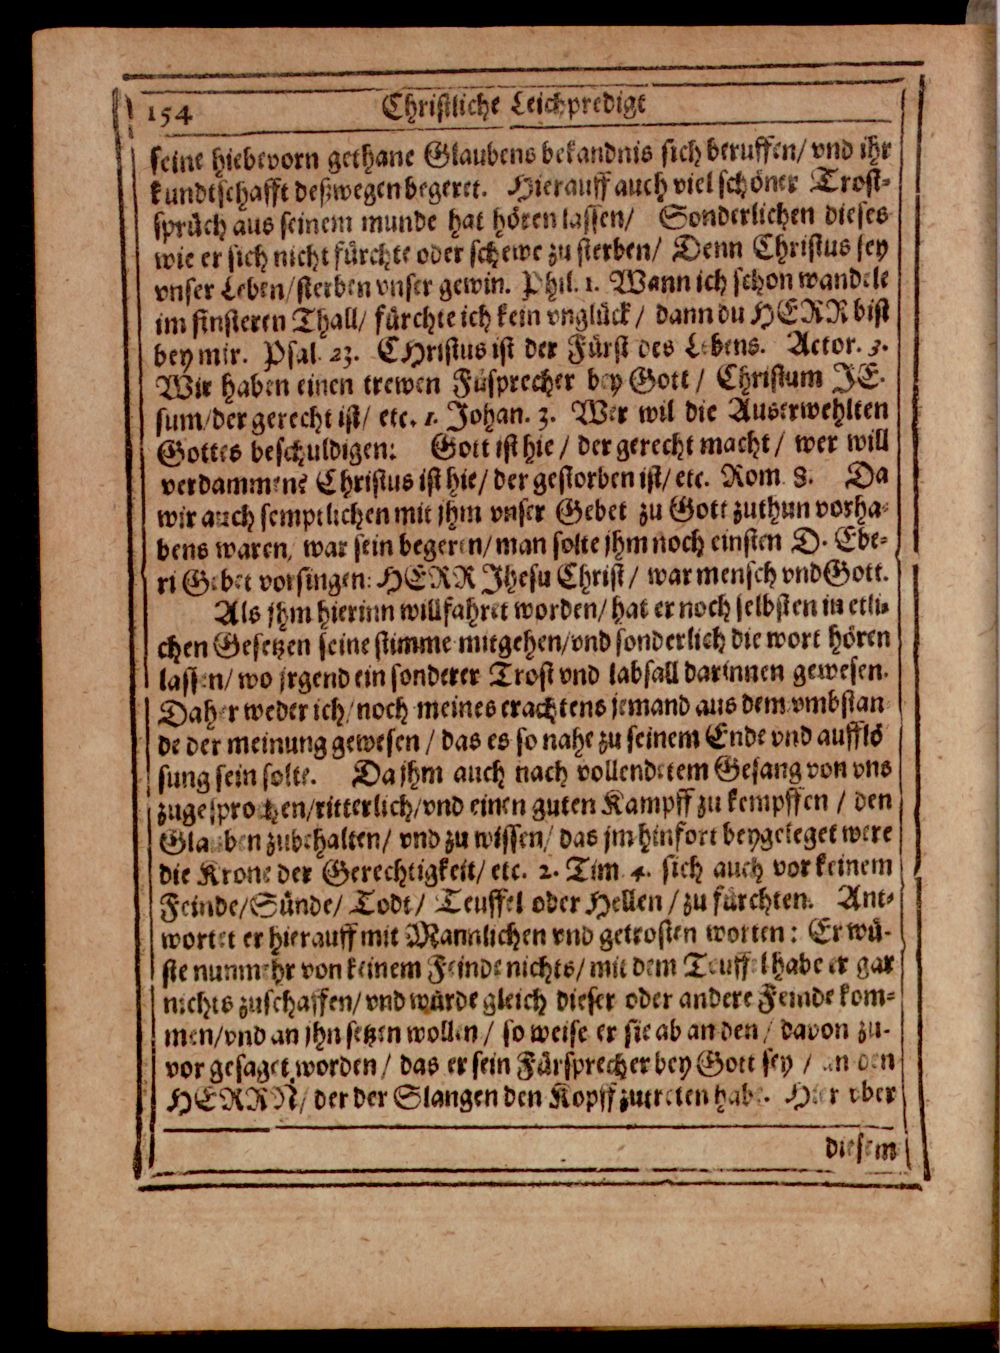 154 Christliche Leichpredigt
seine hiebevorn gethane Glaubens bekandnis sich beruffen/ vnd ihr
kundtschafft deßwegen begeret. Hierauff auch viel schöner Trost-
sprüch aus seinem munde hat hören lassen/ Sonderlichen dieses
wie er sich nicht fürchte oder schewe zu sterben/ Denn Christus sey
vnser Leben/ sterben vnser gewin. Phil. 1. Wann ich schon wandele
im finsteren Thall/ fürchte ich kein vnglück/ dann du HERR bist
bey mir. Psal. 23. CHristus ist der Fürst des Lebens. Actor. 3.
Wir haben einen trewen Füsprecher bey Gott/ Christum JE-
sum/ der gerecht ist/ etc. 1. Johan. 3. Wer wil die Auserwehlten
Gottes beschuldigen: Gott ist hie/ der gerecht macht/ wer will
verdammene Christus ist hie/ der gestorben ist/ etc. Rom. 8. Da
wir auch semptlichen mit jhm vnser Gebet zu Gott zuthun vorha-
bens waren, war sein begeren/ man solte jhm noch einsten D. Ebe-
ri Gebet vorsingen: HERR Jhesu Christ/ war mensch vnd Gott.
Als jhm hierinn willfahret worden/ hat er noch selbsten in etli-
chen Gesetzen seine stimme mitgehen/ vnd sonderlich die wort hören
lassen/ wo jrgend ein sonderer Trost vnd labsall darinnen gewesen.
Daher weder ich/ noch meines erachtens jemand aus dem vmbstan
de der meinung gewesen/ das es so nahe zu seinem Ende vnd aufflö
sung sein solte. Da jhm auch nach vollendetem Gesang von vns
zugesprochen/ ritterlich/ vnd einen guten Kampff zu kempffen/ den
Glauben zubehalten/ vnd zu wissen/ das jm hinfort beygeleget were
die Krone der Gerechtigkeit/ etc. 2. Tim. 4. sich auch vor keinem
Feinde/ Sünde/ Todt/ Teuffel oder Hellen/ zu fürchten. Ant-
wortet er hierauff mit Mannlichen vnd getrosten worten: Er wü-
ste nunmehr von keinem Feinde nichts/ mit dem Teuffel habe er gar
nichts zuschaffen/ vnd würde gleich dieser oder andere Feinde kom-
men/ vnd an jhn setzen wollen/ so weise er sie ab an den/ davon zu-
vor gesaget worden/ das er sein Fürsprecher bey Gott sey/ an den
HERRN/ der der Slangen den Kopff zutreten habe. Hier vber
diesem